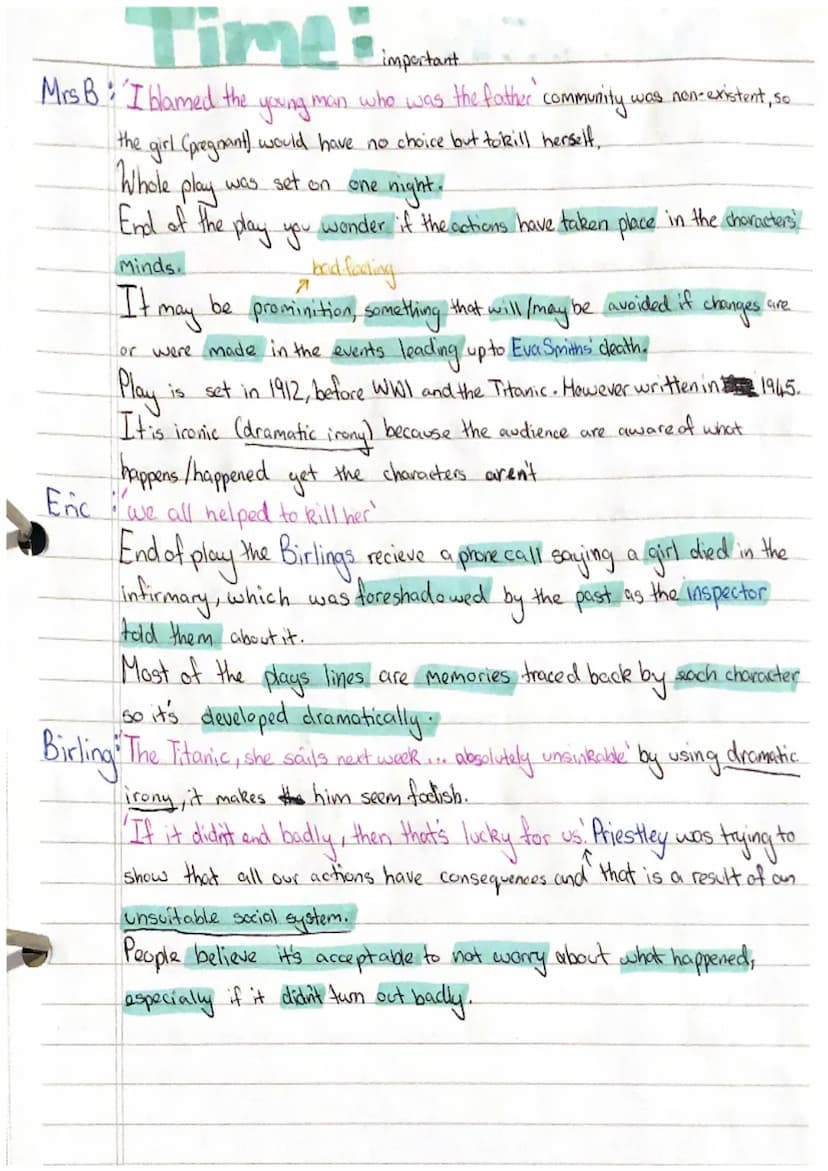 Time:
important
Mrs B : 'I blamed the young man who was the father' community was non-existent, so
the girl (pregnant) would have no choice but to kill herself.
Whole play was set on one night.
End of the play you wonder if the actions have taken place in the characters'
minds.
bad feeling
It may be prominition, something that will/may be avoided if changes are
or were made in the events leading up to Eva Smiths' death.
Play is set in 1912, before WW1 and the Titanic. However written in 1945.
It is ironic (dramatic irony) because the audience are aware of what
happens/happened yet the characters aren't
Eric : 'we all helped to kill her'
End of play the Birlings recieve a phone call saying a girl died in the
infirmary, which was foreshadowed by the past as the inspector
told them about it.
Most of the plays lines are memories traced back by each character
so it's developed dramatically.
Birling: 'The Titanic, she sails next week... absolutely unsinkable' by using dramatic
irony, it makes him seem foolish.
'If it didn't end badly, then that's lucky for us.' Priestley was trying to
show that all our actions have consequences and that is a result of an
unsuitable social system.
People believe it's acceptable to not worry about what happened,
especially if it didn't turn out badly.